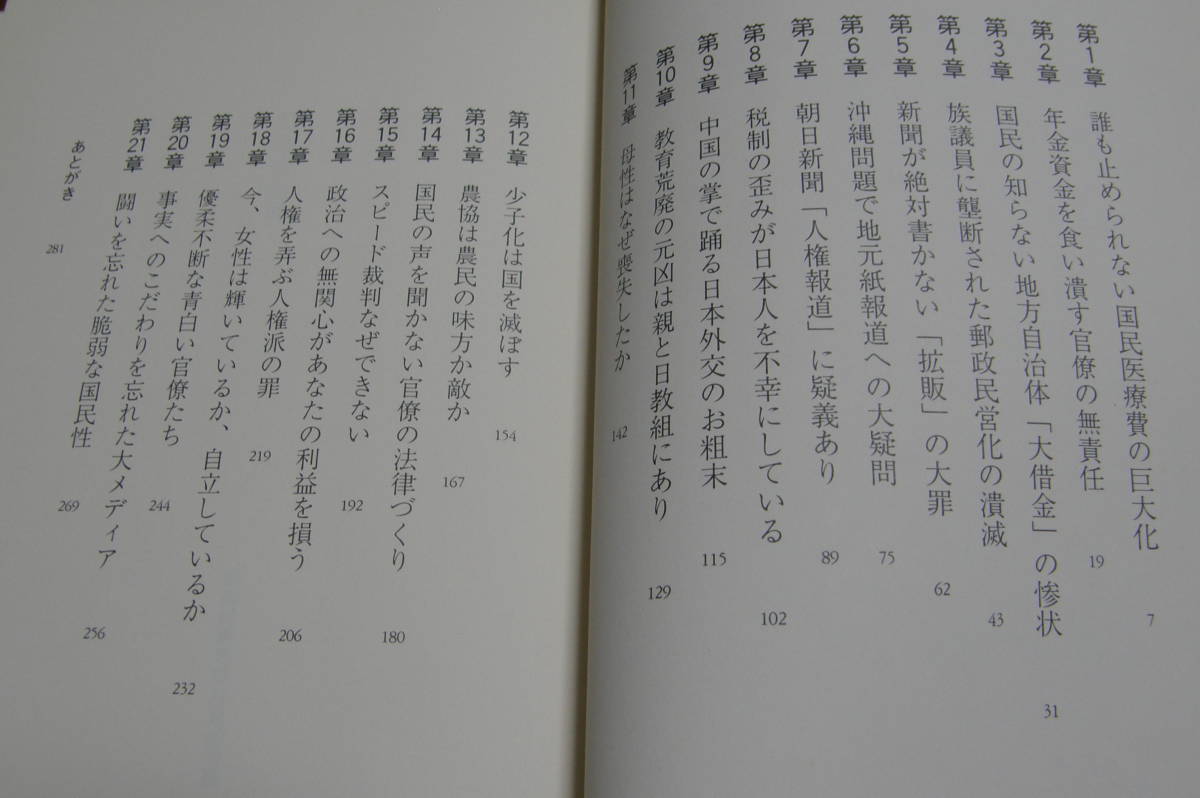 第1章 誰も止められない国民医療費の巨大化 7
第2章 年金資金を食い潰す官僚の無責任 19
第3章 国民の知らない地方自治体「大借金」の惨状 31
第4章 族議員に壟断された郵政民営化の潰滅 43
第5章 新聞が絶対書かない「拡販」の大罪 62
第6章 沖縄問題で地元紙報道への大疑問 75
第7章 朝日新聞「人権報道」に疑義あり 89
第8章 税制の歪みが日本人を不幸にしている 102
第9章 中国の掌で踊る日本外交のお粗末 115
第10章 教育荒廃の元凶は親と日教組にあり 129
第11章 母性はなぜ喪失したか 142
第12章 少子化は国を滅ぼす 154
第13章 農協は農民の味方か敵か 167
第14章 国民の声を聞かない官僚の法律づくり 180
第15章 スピード裁判なぜできない 192
第16章 政治への無関心があなたの利益を損う 206
第17章 人権を弄ぶ人権派の罪 219
第18章 今、女性は輝いているか、自立しているか 232
第19章 優柔不断な青白い官僚たち 244
第20章 事実へのこだわりを忘れた大メディア 256
第21章 闘いを忘れた脆弱な国民性 269
あとがき 281